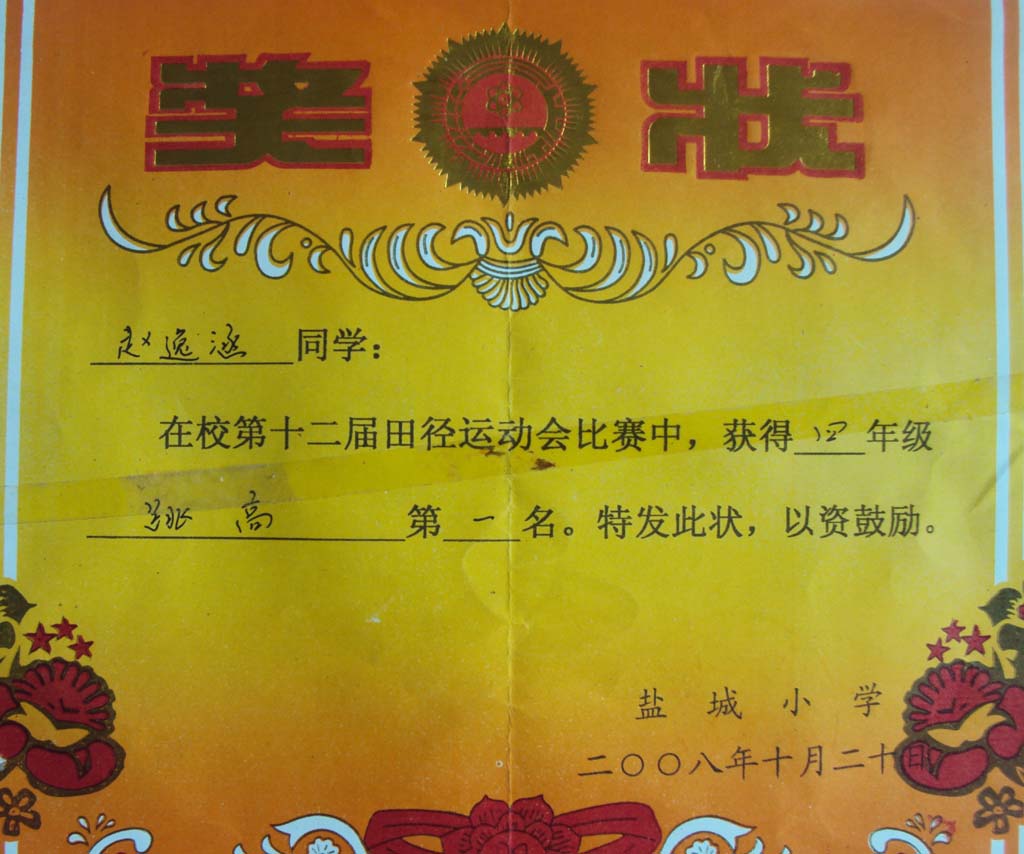 奖状
赵逸涵同学：
在校第十二届田径运动会比赛中，获得四年级
跳高第一名。特发此状，以资鼓励。
盐城小学
二〇〇八年十月二十日